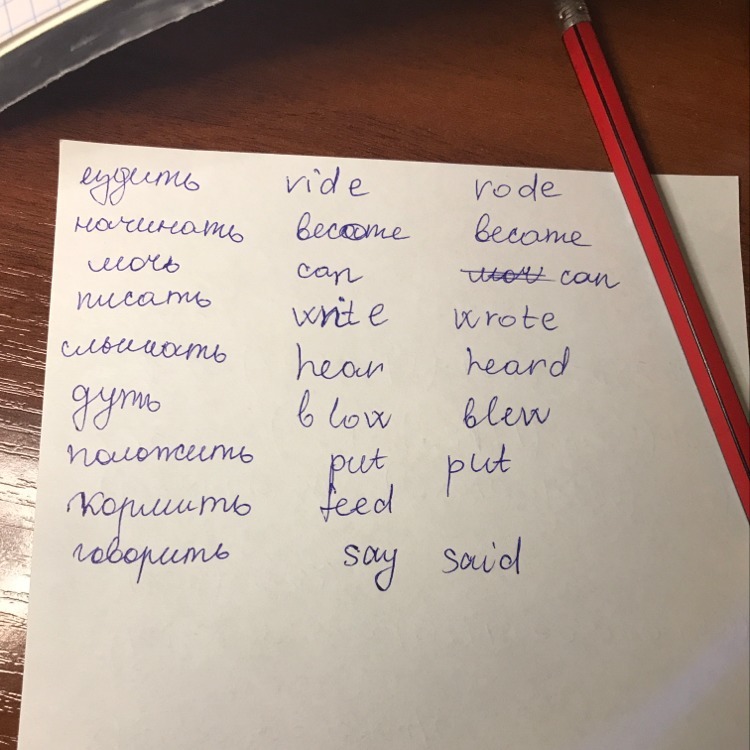 ездить ride rode
начинать become became
мочь can can
писать write wrote
слышать hear heard
дуть blow blew
положить put put
кормить feed
говорить say said